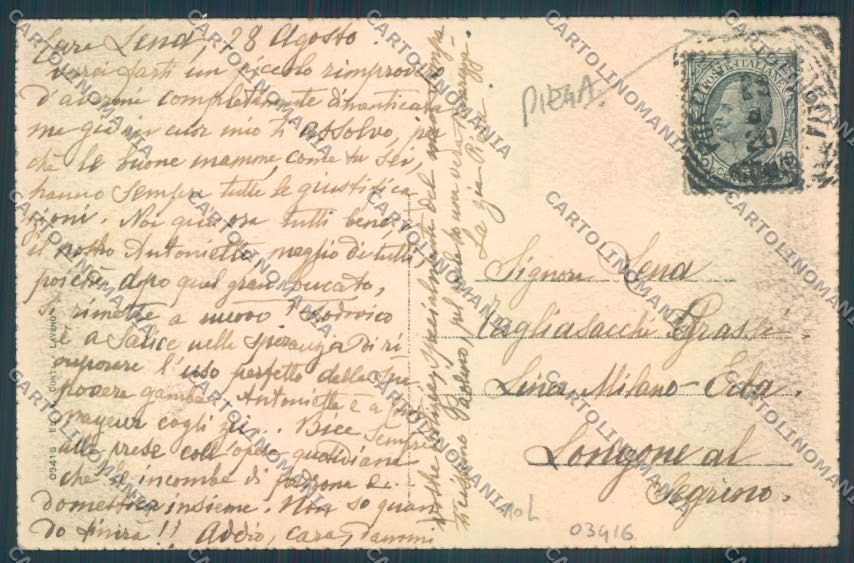 Cara Lena, 28 Agosto.
Vorrei farti un piccolo rimprovero
d'avermi completamente dimenticata
ma già in cuor mio ti assolvo, per
chè le buone mamme, come tu sei,
hanno sempre tutte le giustifica
zioni. Noi qua ora tutti bene,
il nostro Antonietto meglio di tutti,
poichè dopo quel gran bucato,
si rimette a nuovo! Lodovico
è a Salice nella speranza di ri
cuperare l'uso perfetto della sua
povera gamba. Antonietta è a
mayeur cogli zii... Bice sempre
alle prese coll'opera quotidiana
che le incombe di padrona e
domestica insieme. Non so quan
do finirà!! Addio, cara, dammi
vostre notizie, specialmente del
Paolino, pel quale
La zia
PIEGA.
POSTE ITALIANE
20
Signora Lena
Tagliasacchi Grassi
Linea Milano-Erba.
Longone al
Segrino.
10L
03416
03416
CARTOLINOMANIA